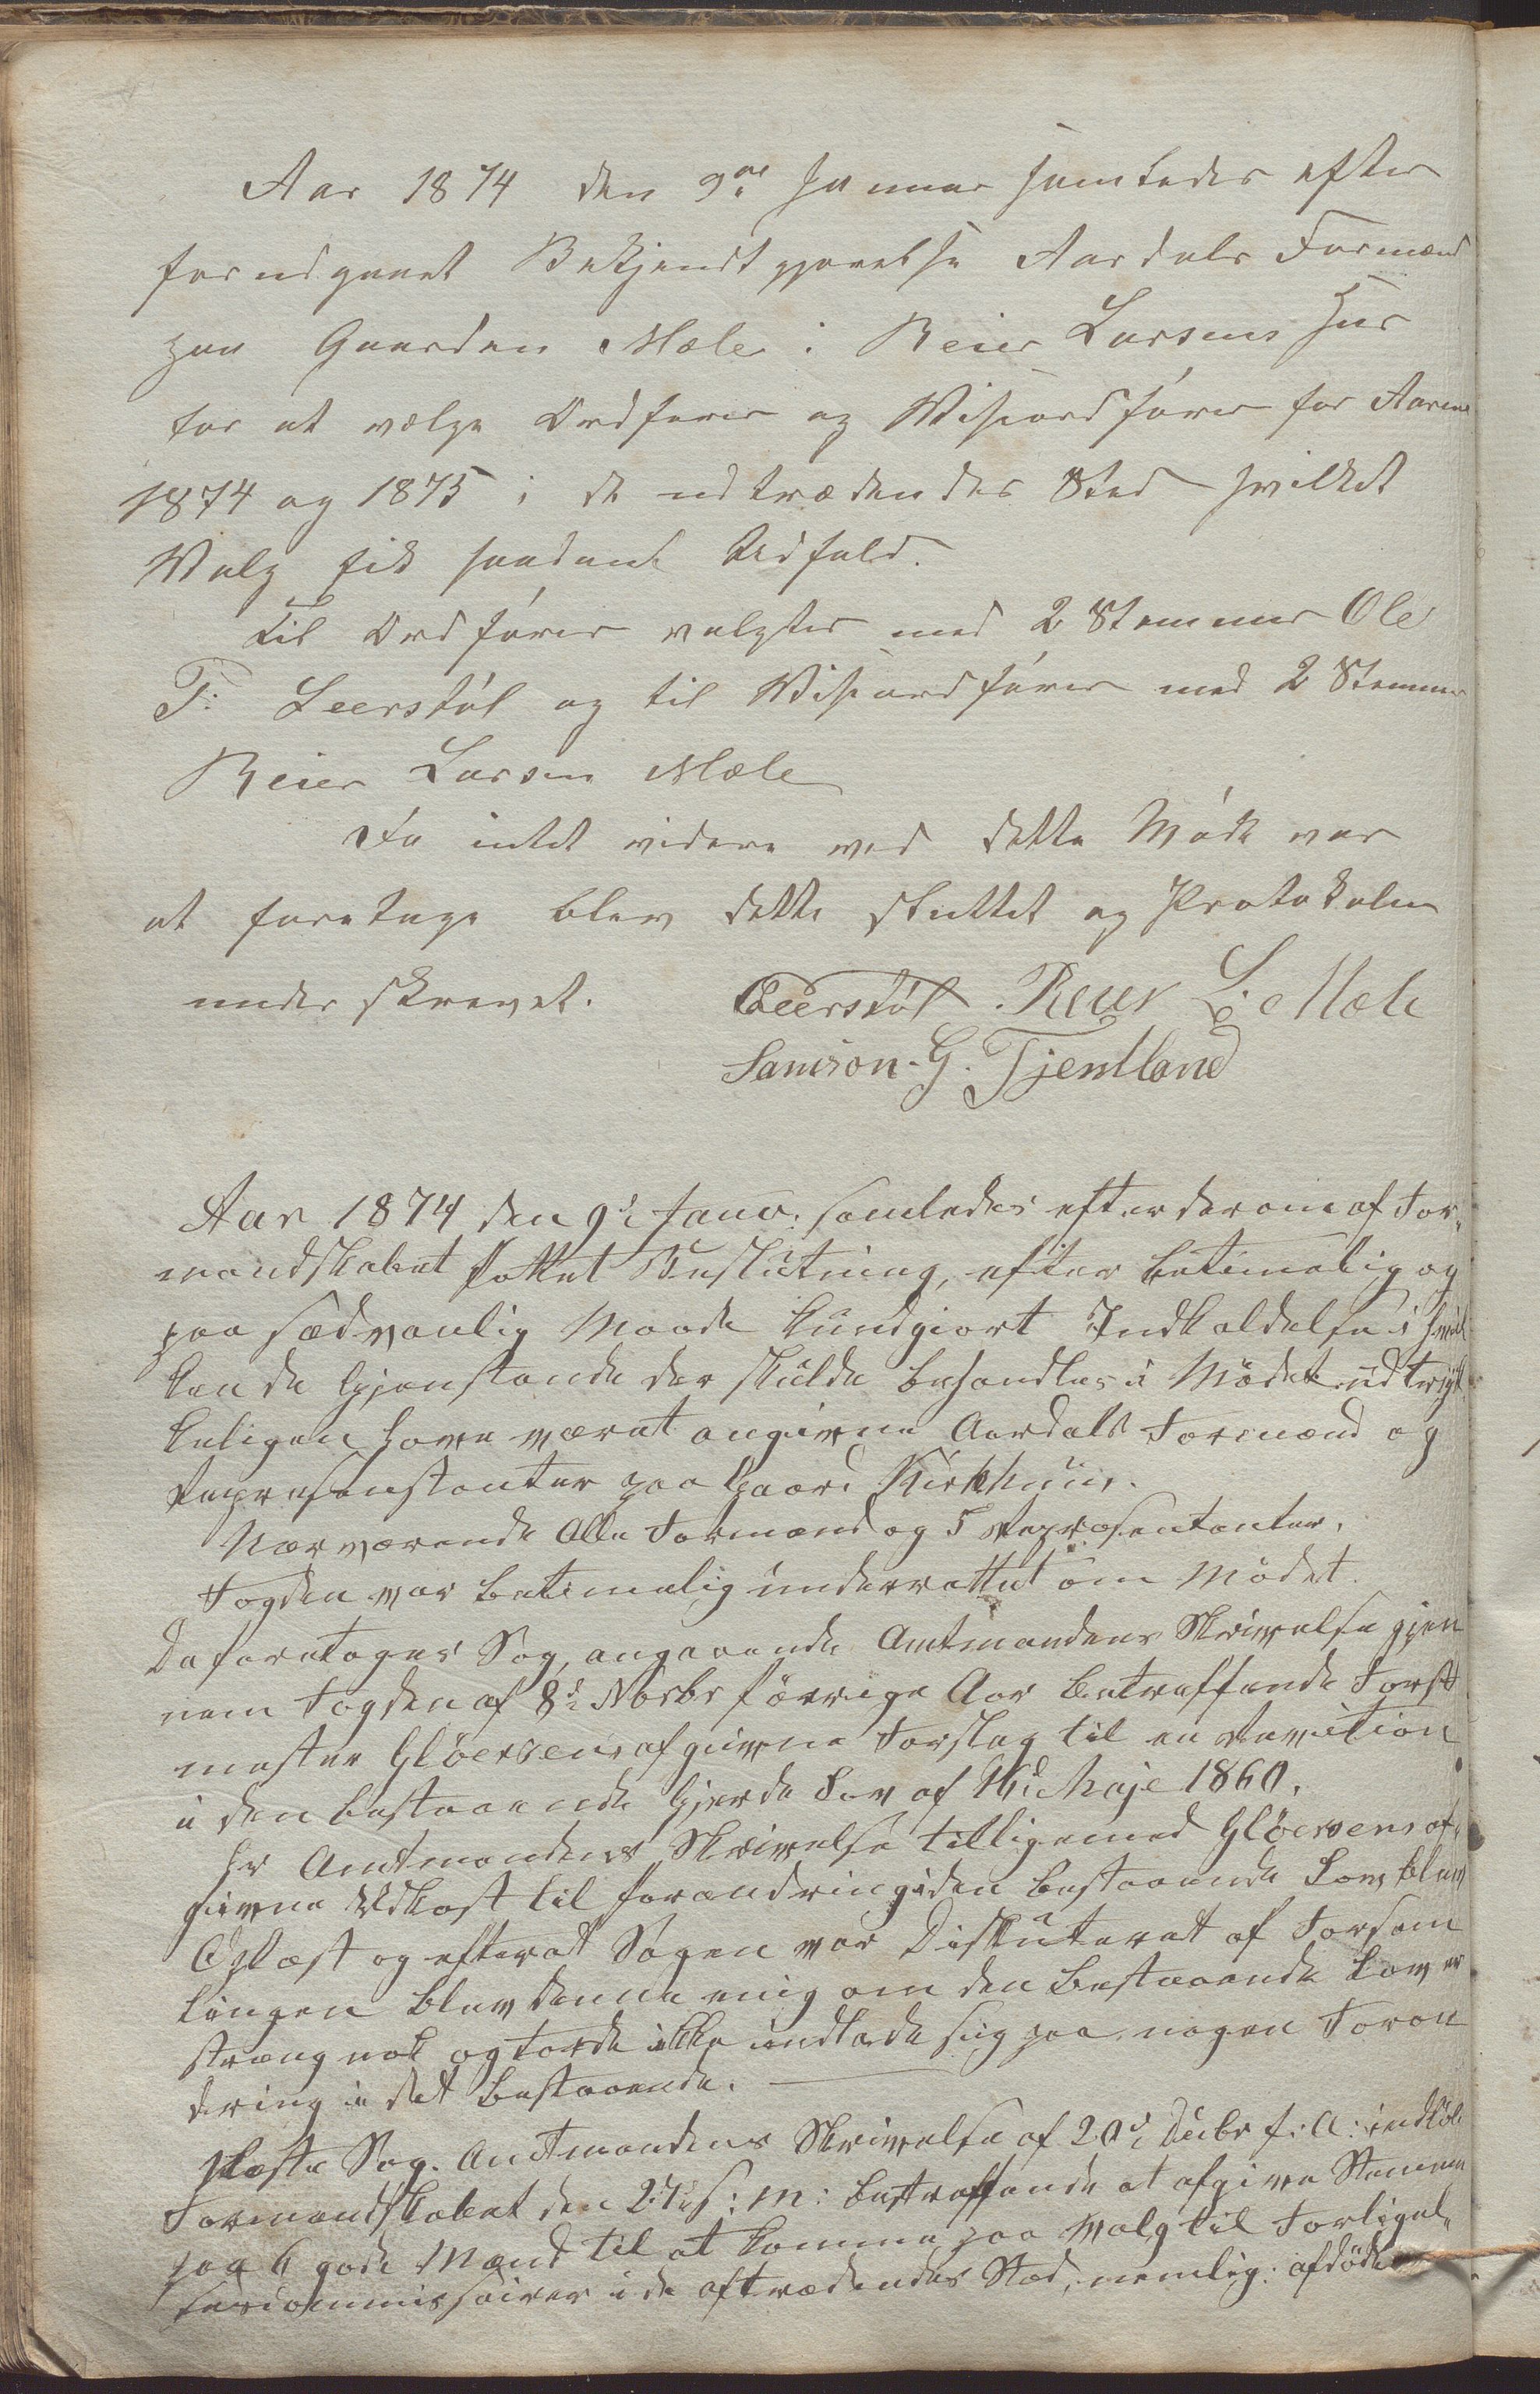 Aar 1874 den 9de Januar samledes efter
forudgaaet Bekjendtgjørelse Aardals Formænd
paa Gaarden Mæle i Reier Larsens Hus
for at vælge Ordfører og Viseordfører for Aarene
1874 og 1875 i de udtrædendes Sted hvilket
Valg fik saadant Udfald.
Til Ordfører valgtes med 2 Stemmer Ole
T: Leerstøl og til Viseordfører med 2 Stemmer
Reier Larsen Mæle
Da intet videre ved dette Møde var
at foretage blev dette sluttet og Protokolen
underskrevet. OLeerstøl. Reier L. Mæle
Samson. G. Tjentland
Aar 1874 den 9de Janv: samledes efter derom af For-
mandskabet fattet Beslutning, efter betimelig og
paa sædvanlig Maade kundgiort Indkaldelse i hvil
ken de Gjenstande der skulde behandles i Mødet udtryk
keligen have været angivne Aardals Formænd og
Repræsenstanter paa Gaard Kirkhuus.
Nærværende Alle Formænd og 5 Repræsentanter.
Fogden var betimelig underrettet om Mødet.
Da foretoges Sag, angaaende Amtmandens Skrivelse gjen
nem Fogden af 8de Novbr forrige Aar betreffende Forst
mester Gløersens afgivne Forslag til en Revition
i den bestaaende Gjerde Lov af 16de Maje 1860.
Hr Amtmandens Skrivelse tilligemed Gløersens af-
givne Udkast til forandring i den bestaaende Lov blev
Oplæst og efterat Sagen var Diskuteret af Forsam
lingen blev denne enig om den bestaaende Lov er
streng nok og torde ikke indlade sig paa nogen Foran
dring i det bestaaende.
Næste Sag. Amtmandens Skrivelse af 20de Debr f: A: indkom
Formandskabet den 27de s: M: betreffende at afgive Stemme
paa 6 gode Mænd til at komme paa Valg til Forligel-
sescommissairer i de aftrædendes Sted, nemlig: afdøde